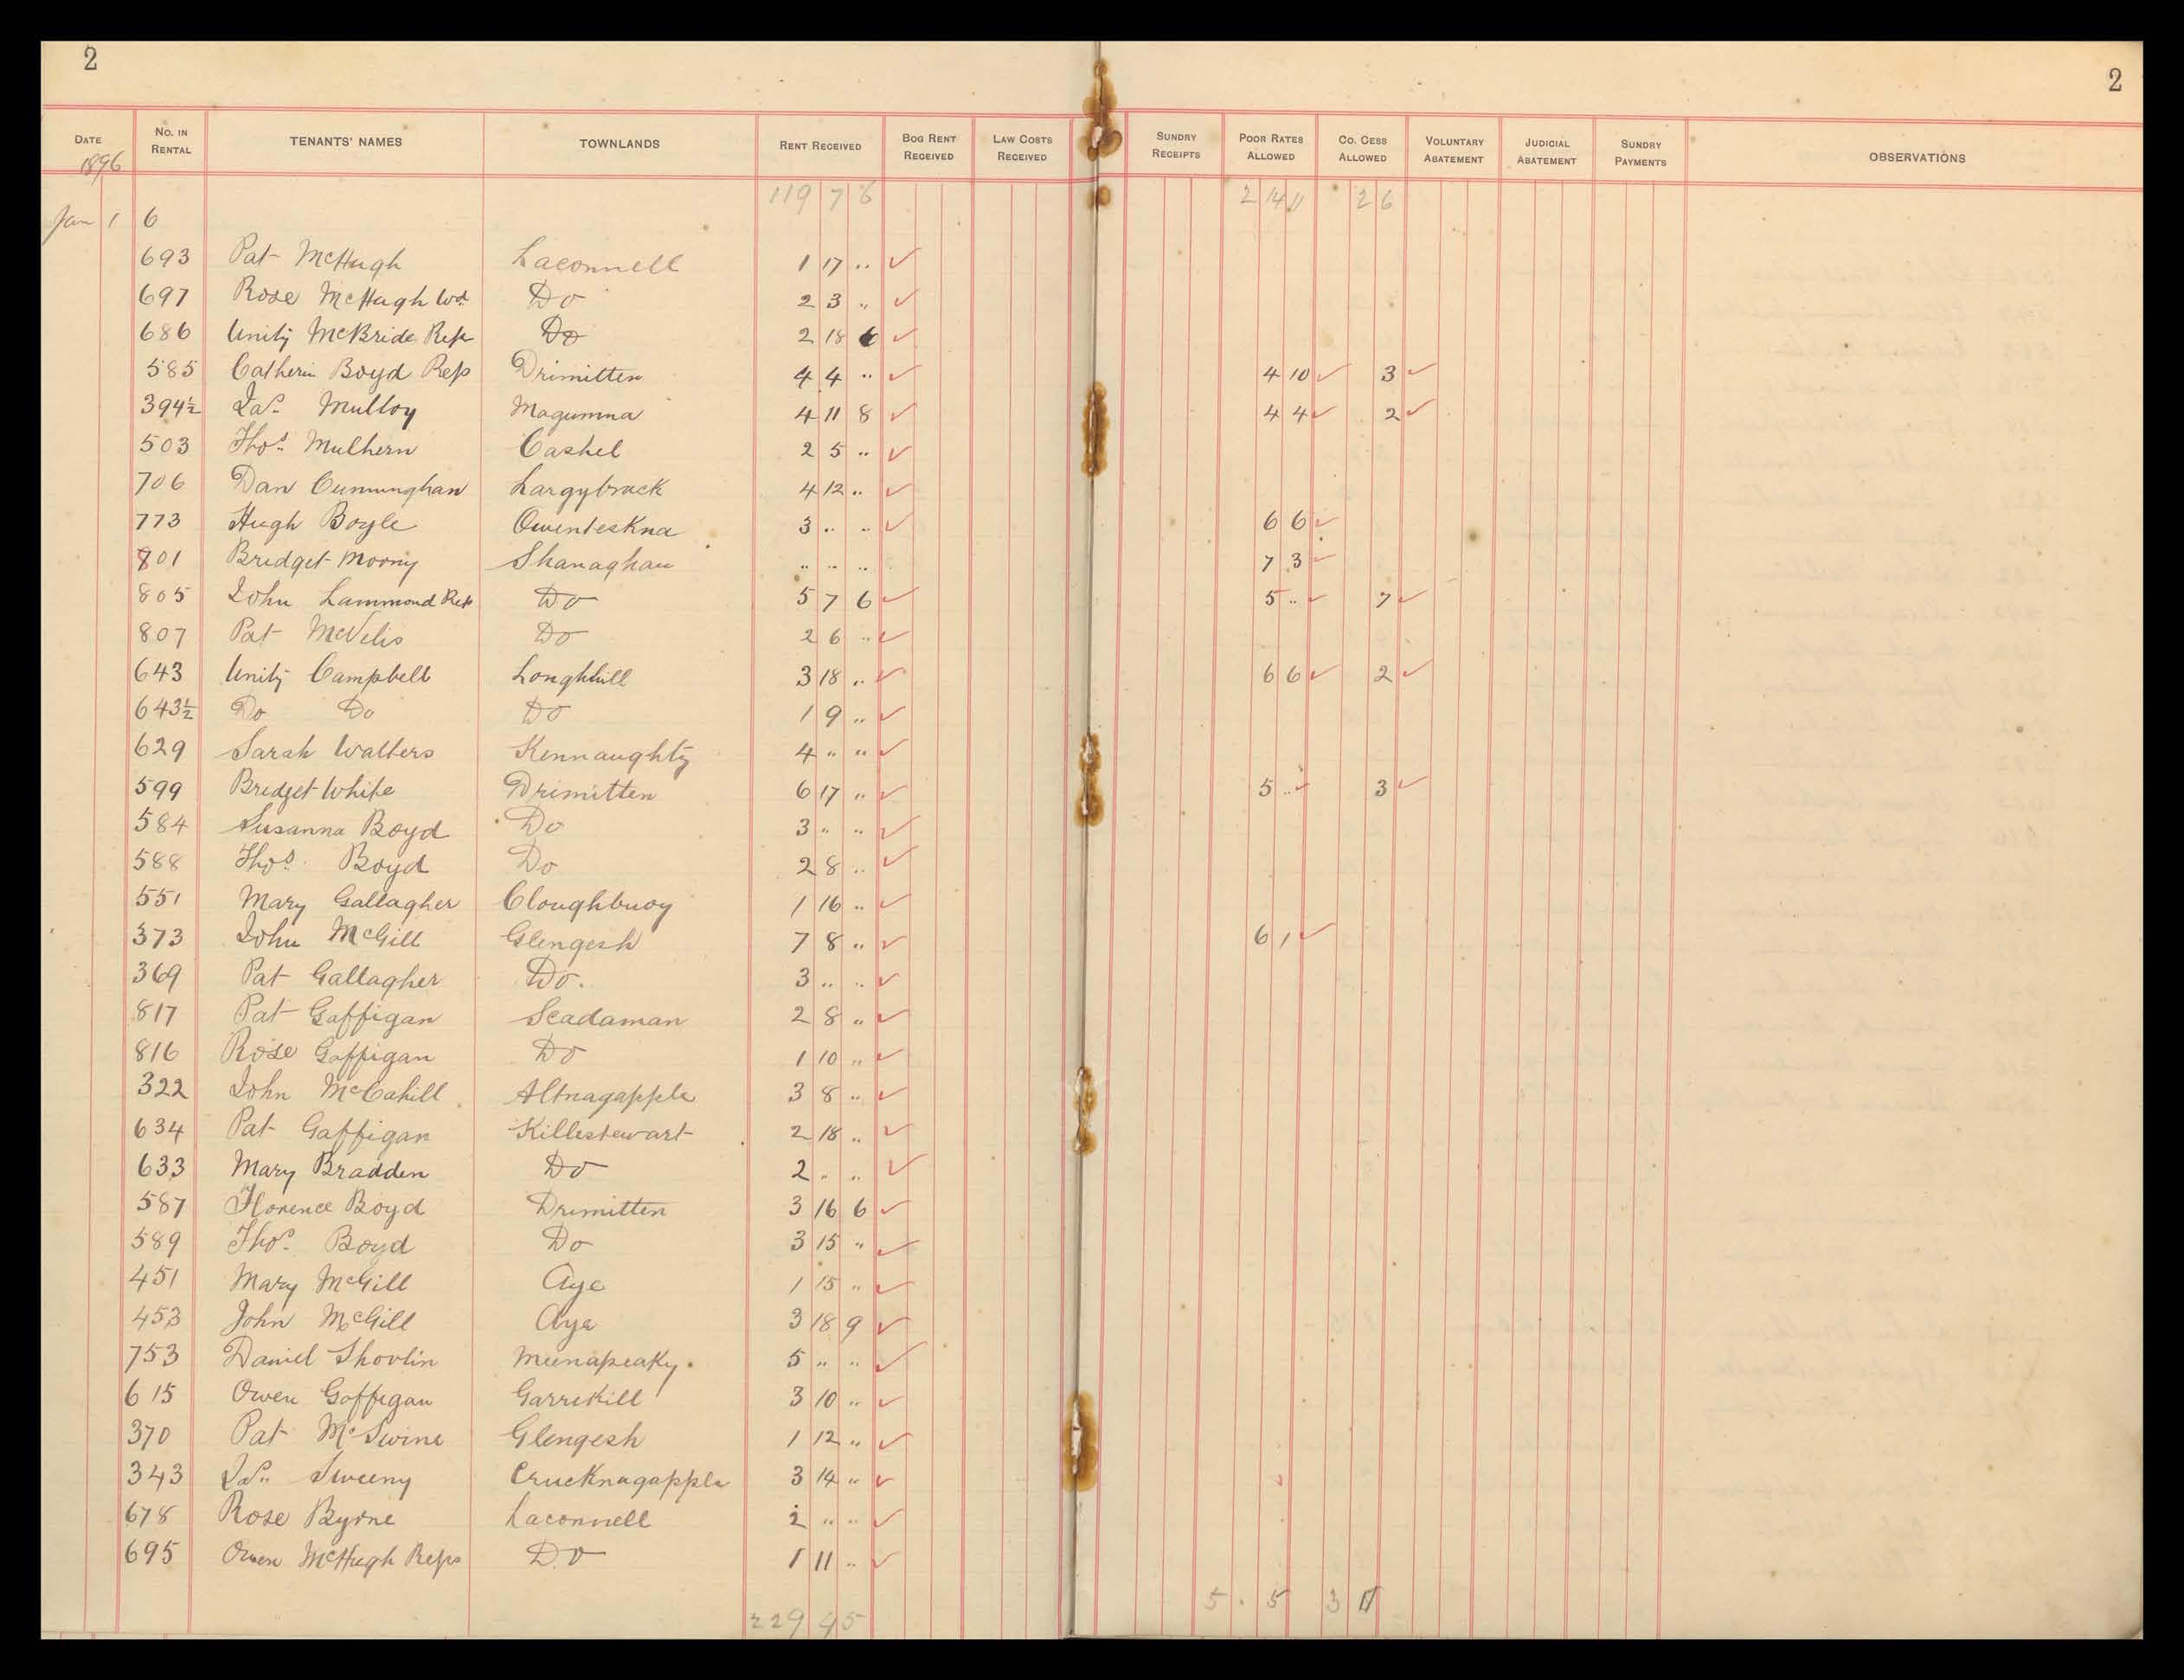 2 2
DATE 1896 NO. IN RENTAL TENANTS' NAMES TOWNLANDS RENT RECEIVED BOG RENT RECEIVED LAW COSTS RECEIVED SUNDRY RECEIPTS POOR RATES ALLOWED CO. CESS ALLOWED VOLUNTARY ABATEMENT JUDICIAL ABATEMENT SUNDRY PAYMENTS OBSERVATIONS
119 7 8 2 14 11 2 6
Jan 1 6
693 Pat McHugh Laconnell 1 17 ..
697 Rose McHugh Wd. Do 2 3 ..
686 Unity McBride Rep Do 2 18 6
585 Catherin Boyd Reps Drimitten 4 4 .. 4 10 3
394½ Jas. Mulloy Magumna 4 11 8 4 4 2
503 Thos. Mulhern Cashel 2 5 ..
706 Dan Cunninghan Largybrack 4 12 ..
773 Hugh Boyle Owenteskna 3 .. .. 6 6
801 Bridget Moony Shanaghan .. .. .. 7 3
805 John Lammond Rep Do 5 7 6 5 .. 7
807 Pat McVelis Do 2 6 ..
643 Unity Campbell Loughhill 3 18 .. 6 6 2
643½ Do Do Do 1 9 ..
629 Sarah Walters Kennaughty 4 .. ..
599 Bridget White Drimitten 6 17 .. 5 .. 3
584 Susanna Boyd Do 3 .. ..
588 Thos. Boyd Do 2 8 ..
551 Mary Gallagher Cloughbuoy 1 16 ..
373 John McGill Glengesh 7 8 .. 6 1
369 Pat Gallagher Do. 3 .. ..
817 Pat Gaffigan Scadaman 2 8 ..
816 Rose Gaffigan Do 1 10 ..
322 John McCahill Altnagapple 3 8 ..
634 Pat Gaffigan Killestewart 2 18 ..
633 Mary Bradden Do 2 .. ..
587 Florence Boyd Drimitten 3 16 6
589 Thos. Boyd Do 3 15 ..
451 Mary McGill Aye 1 15 ..
453 John McGill Aye 3 18 9
753 Daniel Shovlin Meenapeaky. 5 .. ..
615 Owen Gaffigan Garrekill 3 10 ..
370 Pat McSwine Glengesh 1 12 ..
343 Jas. Sweeny Crucknagapple 3 14 ..
678 Rose Byrne Laconnell 2 .. ..
695 Owen McHugh Reps Do 1 11 ..
229 4 5 5 . 5 3 11